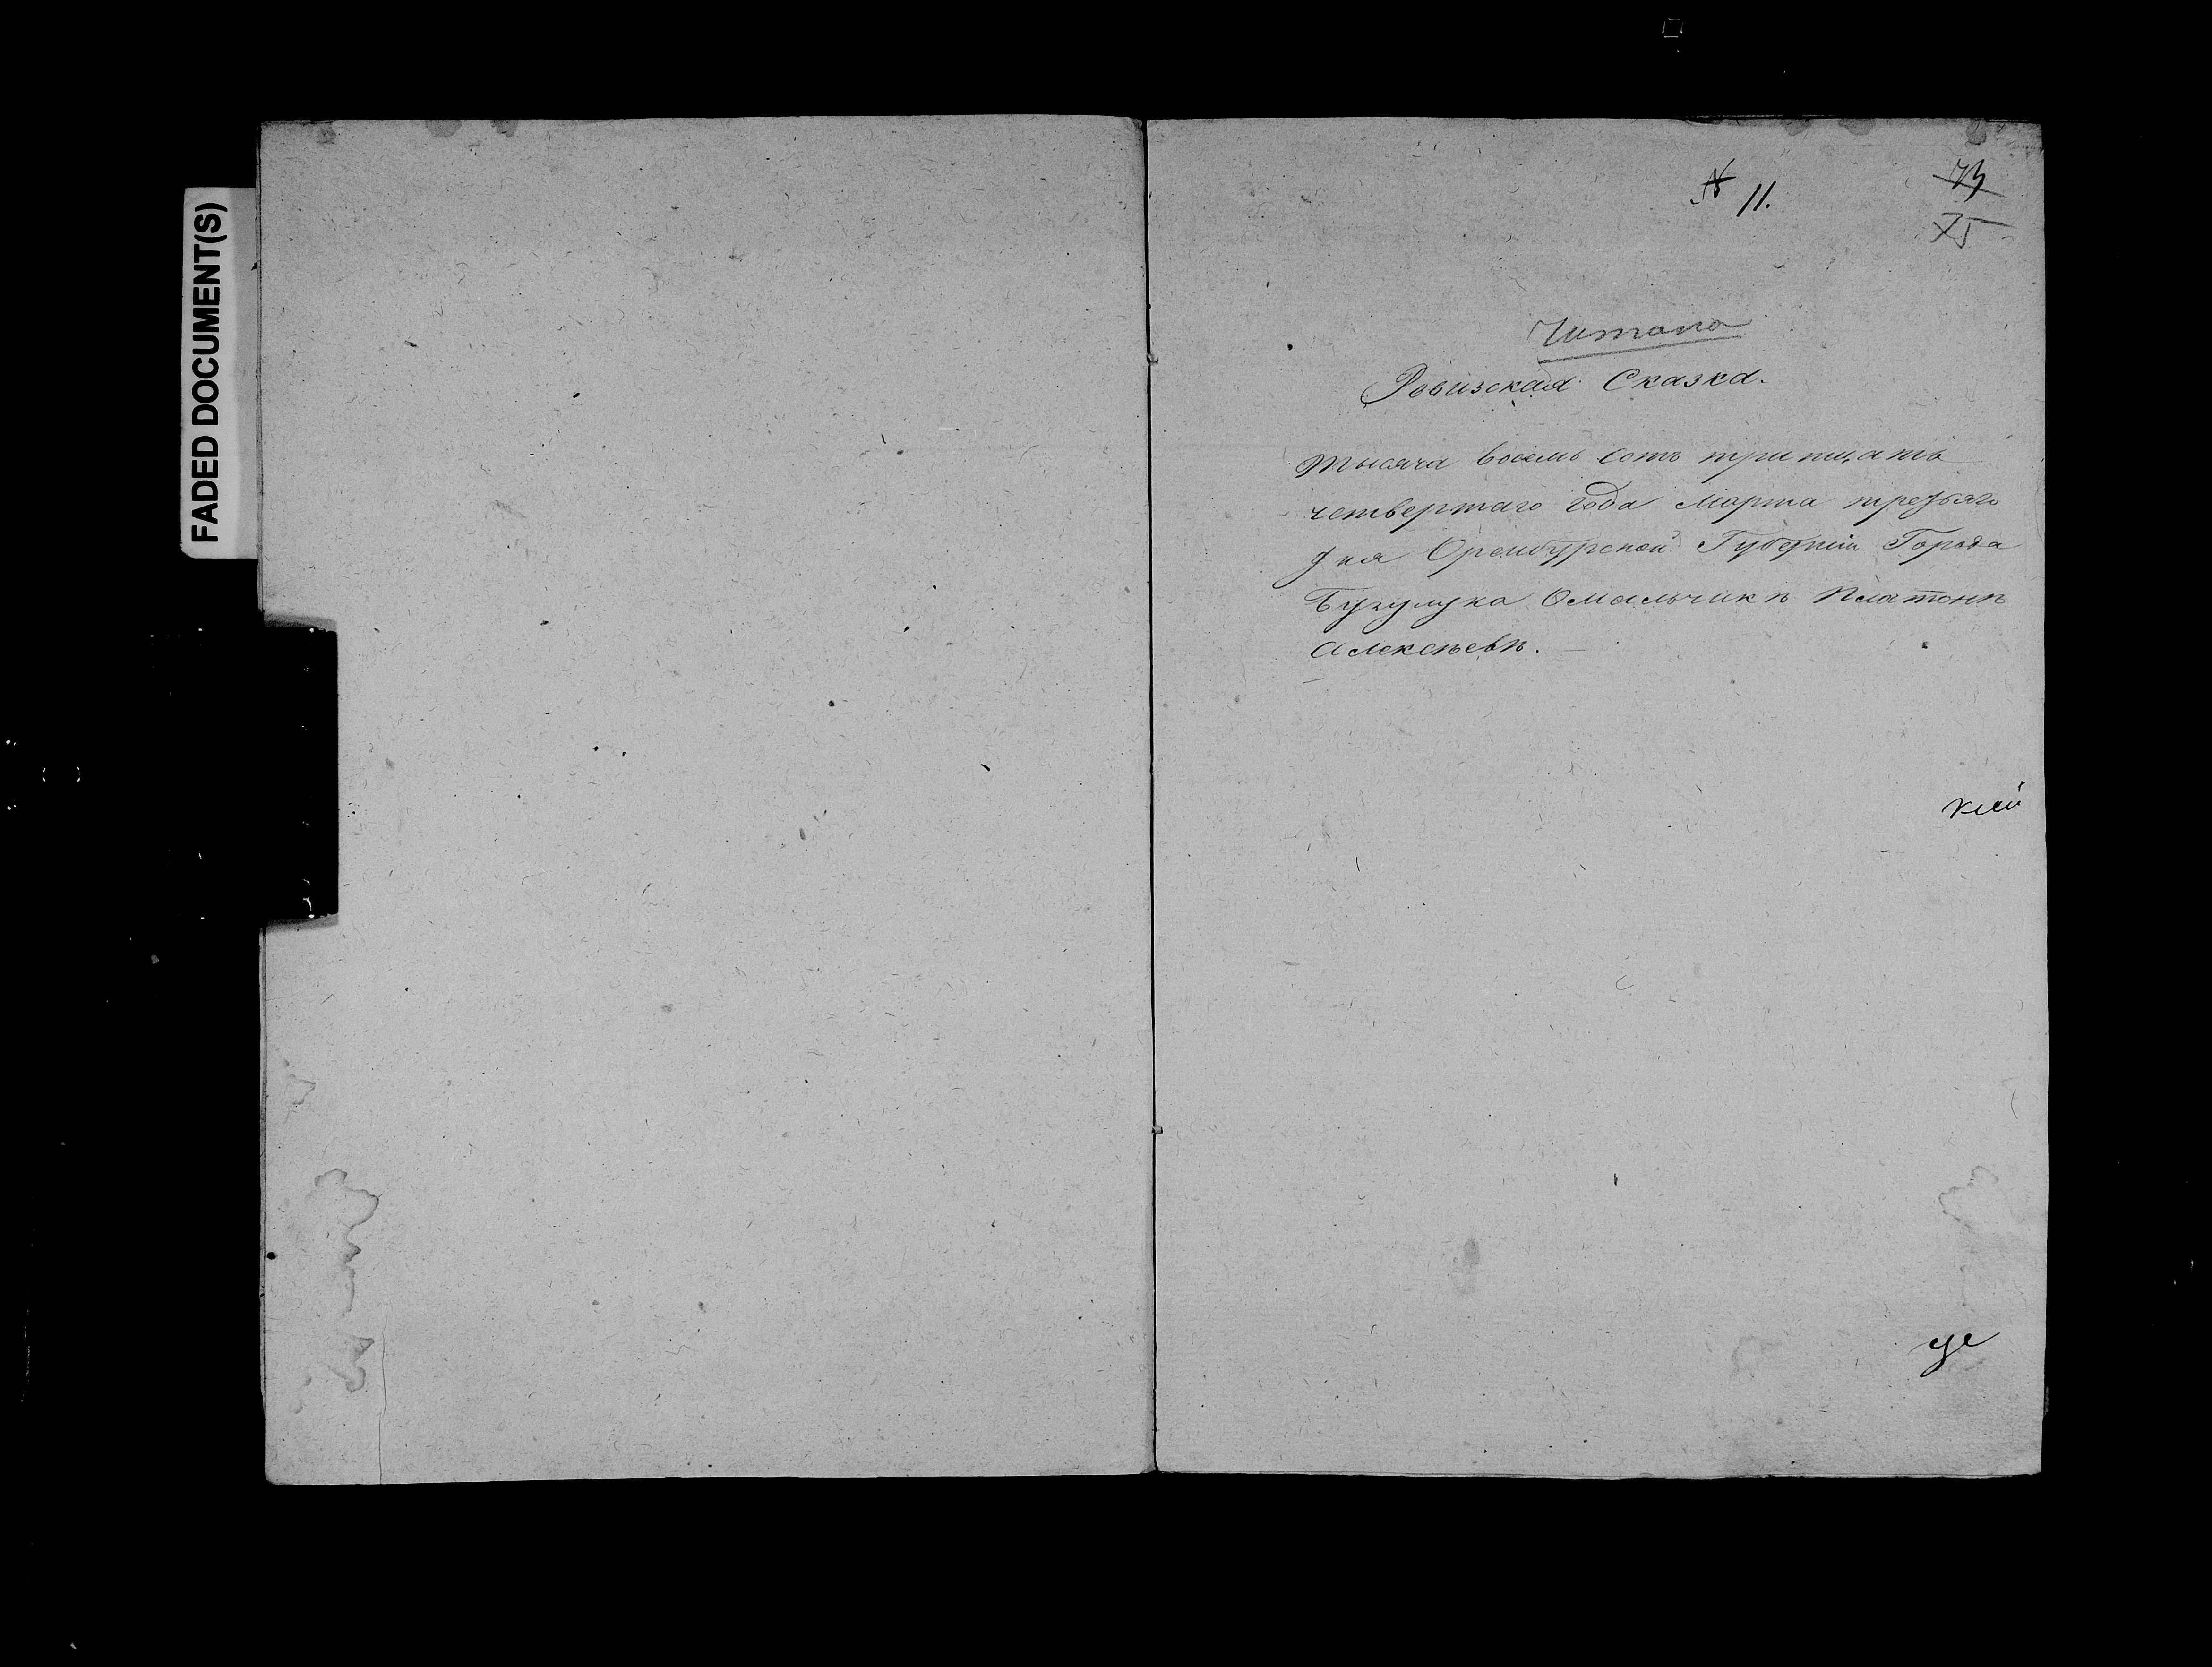 FADED DOCUMENT(S)
№ 11.
73
75
Читано
Ревизская Сказка.
Тысяча восемь сотъ тритцать
четвертаго года Марта третьяго
дня Оренбурской Губернiи Города
Бузулука Омальчикѣ Платонѣ
Алексѣевѣ.
кий